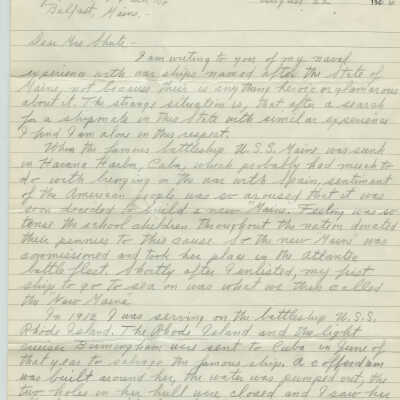 Belfast, Maine,- August 22
Dear Mrs Shute-
I am writing to you of my naval
experience with our ships named after the State of
Maine, not because their is anything heroic or glamorous
about it. The strange situation is, that after a search
for a shipmate in this State with similar experience
I find I am alone in this respect.
When the famous battleship U.S.S. Maine was sunk
in Havana Harbor, Cuba, which probably had much to
do with bringing on the war with Spain, sentiment
of the American people was so aroused that it was
soon decided to build a new "Maine. Feeling was so
tense the school children throughout the nation donated
their pennies to this cause. So the new Maine was
commissioned and took her place in the Atlantic
battle fleet. Shortly after I enlisted, my first
ship to go to sea on was what we then called
the New Maine
In 1912 I was serving on the battleship U.S.S.
Rhode Island. The Rhode Island and the light
cruiser Birmingham were sent to Cuba in June of
that year to salvage the famous ship. A cofferdam
was built around her, the water was pumped out, the
two holes in her hull were closed and I saw her